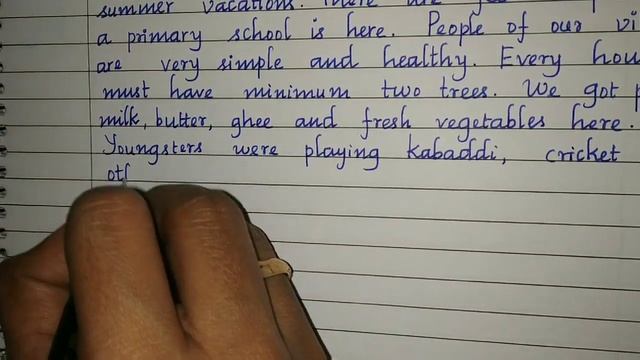 summer vacations.
a primary school is here. People of our vi
are very simple and healthy. Every hou
must have minimum two trees. We got p
milk, butter, ghee and fresh vegetables here.
Youngsters were playing kabaddi, cricket
oth